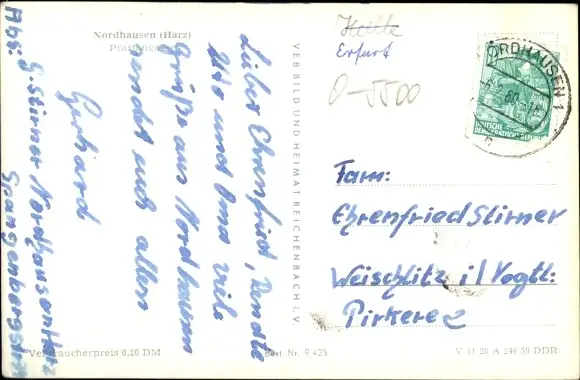 Nordhausen (Harz)
Abs: G. Stirner Nordhausen Harz
Spangenbergstr
Lieber Ehrenfried,
Ute und Oma viele
Grüße aus Nordhausen
sendet euch allen
Gerhard
Verbraucherpreis 0,20 DM
VEB BILD UND HEIMAT REICHENBACH I. V.
Best. Nr. 9 425
Halle
Erfurt
0-5500
NORDHAUSEN 1
DEUTSCHE
DEMOKRATISCHE REPUBLIK
Fam:
Ehrenfried Stirner
Weischlitz i/ Vogtl:
V 11 28 A 240 59 DDR